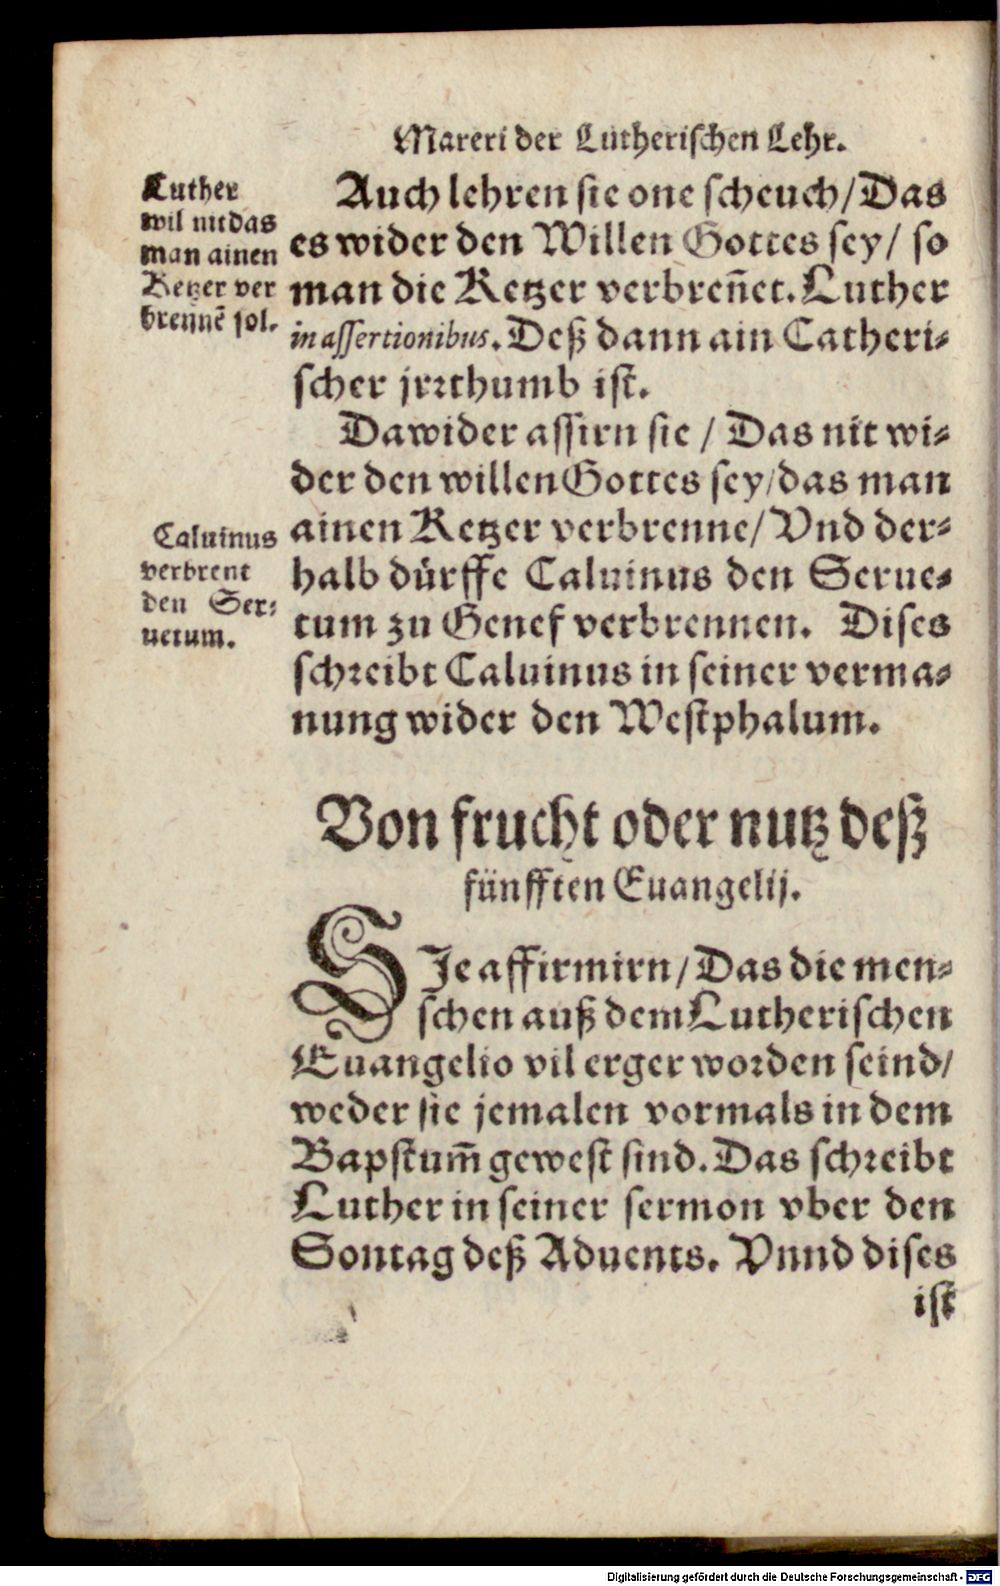 Mareri der Lutherischen Lehr.
Luther
wil nit das
man ainen
Ketzer ver
brennē sol.
Auch lehren sie one scheuch/ Das
es wider den Willen Gottes sey/ so
man die Ketzer verbreñet. Luther
in assertionibus. Deß dann ain Catheri-
scher jrrthumb ist.
Dawider assirn sie / Das nit wi-
der den willen Gottes sey/ das man
ainen Ketzer verbrenne/ Vnd der-
halb dürffe Caluinus den Serue-
tum zu Genef verbrennen. Dises
schreibt Caluinus in seiner verma-
nung wider den Westphalum.
Caluinus
verbrent
den Ser-
uetum.
Von frucht oder nutz deß
fünfften Euangelij.
SJe affirmirn/ Das die men-
schen auß dem Lutherischen
Euangelio vil erger worden seind/
weder sie jemalen vormals in dem
Bapstum̄ gewest sind. Das schreibt
Luther in seiner sermon vber den
Sontag deß Aduents. Vnnd dises
ist
Digitalisierung gefördert durch die Deutsche Forschungsgemeinschaft - DFG